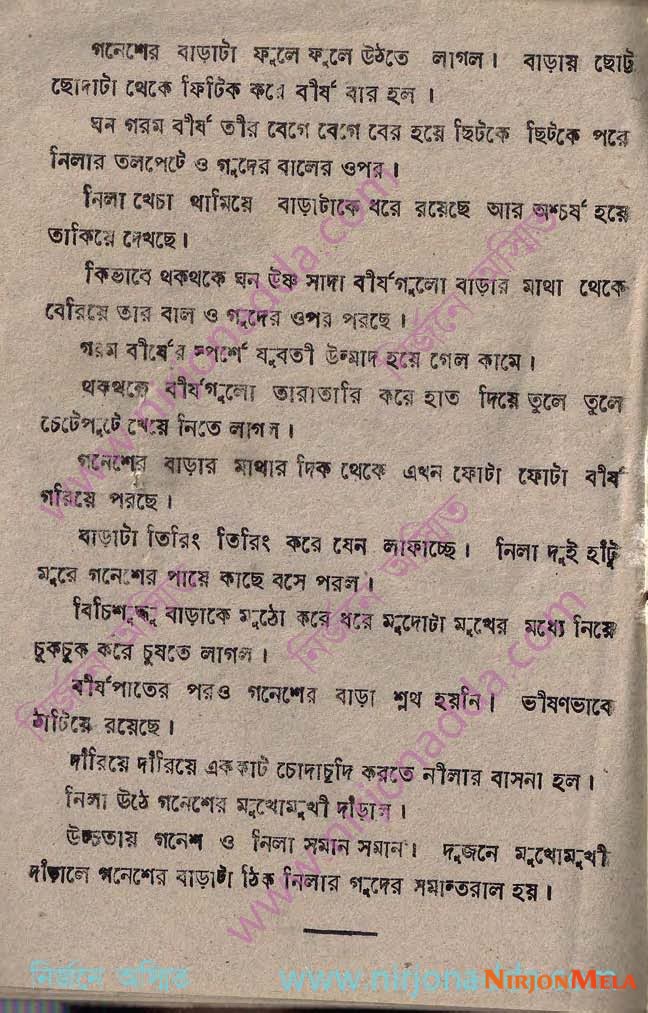 গনেশের বাড়াটা ফুলে ফুলে উঠতে লাগল। বাড়ায় ছোট্ট
ছেদাটা থেকে ফিটিক করে বীর্য বার হল।
ঘন গরম বীর্য তীর বেগে বেগে বের হয়ে ছিটকে ছিটকে পরে
নিলার তলপেটে ও গুদের বালের ওপর।
নিলা খেচা থামিয়ে বাড়াটাকে ধরে রয়েছে আর অশ্চর্য হয়ে
তাকিয়ে দেখছে।
কিভাবে থকথকে ঘন উষ্ণ সাদা বীর্যগুলো বাড়ার মাথা থেকে
বেরিয়ে তার বাল ও গুদের ওপর পরছে।
গরম বীর্যের স্পর্শে যুবতী উন্মাদ হয়ে গেল কামে।
থকথকে বীর্যগুলো তারাতারি করে হাত দিয়ে তুলে তুলে
চেটেপুটে খেয়ে নিতে লাগল।
গনেশের বাড়ার মাথার দিক থেকে এখন ফোটা ফোটা বীর্য
গরিয়ে পরছে।
বাড়াটা তিরিং তিরিং করে যেন লাফাচ্ছে। নিলা দুই হাঁটু
মুরে গনেশের পায়ে কাছে বসে পরল।
বিচিশুদ্ধু বাড়াকে মুঠো করে ধরে মুদোটা মুখের মধ্যে নিয়ে
চুকচুক করে চুষতে লাগল।
বীর্যপাতের পরও গনেশের বাড়া শ্লথ হয়নি। ভীষণভাবে
ঠাটিয়ে রয়েছে।
দাঁরিয়ে দাঁরিয়ে এককাট চোদাচুদি করতে নীলার বাসনা হল।
নিলা উঠে গনেশের মুখোমুখী দাঁড়াল।
উচ্চতায় গনেশ ও নিলা সমান সমান। দুজনে মুখোমুখী
দাঁড়ালে গনেশের বাড়াটা ঠিক নিলার গুদের সমান্তরাল হয়।
নির্জনে অস্মিত www.nirjonadda.com
NIRJONMELA